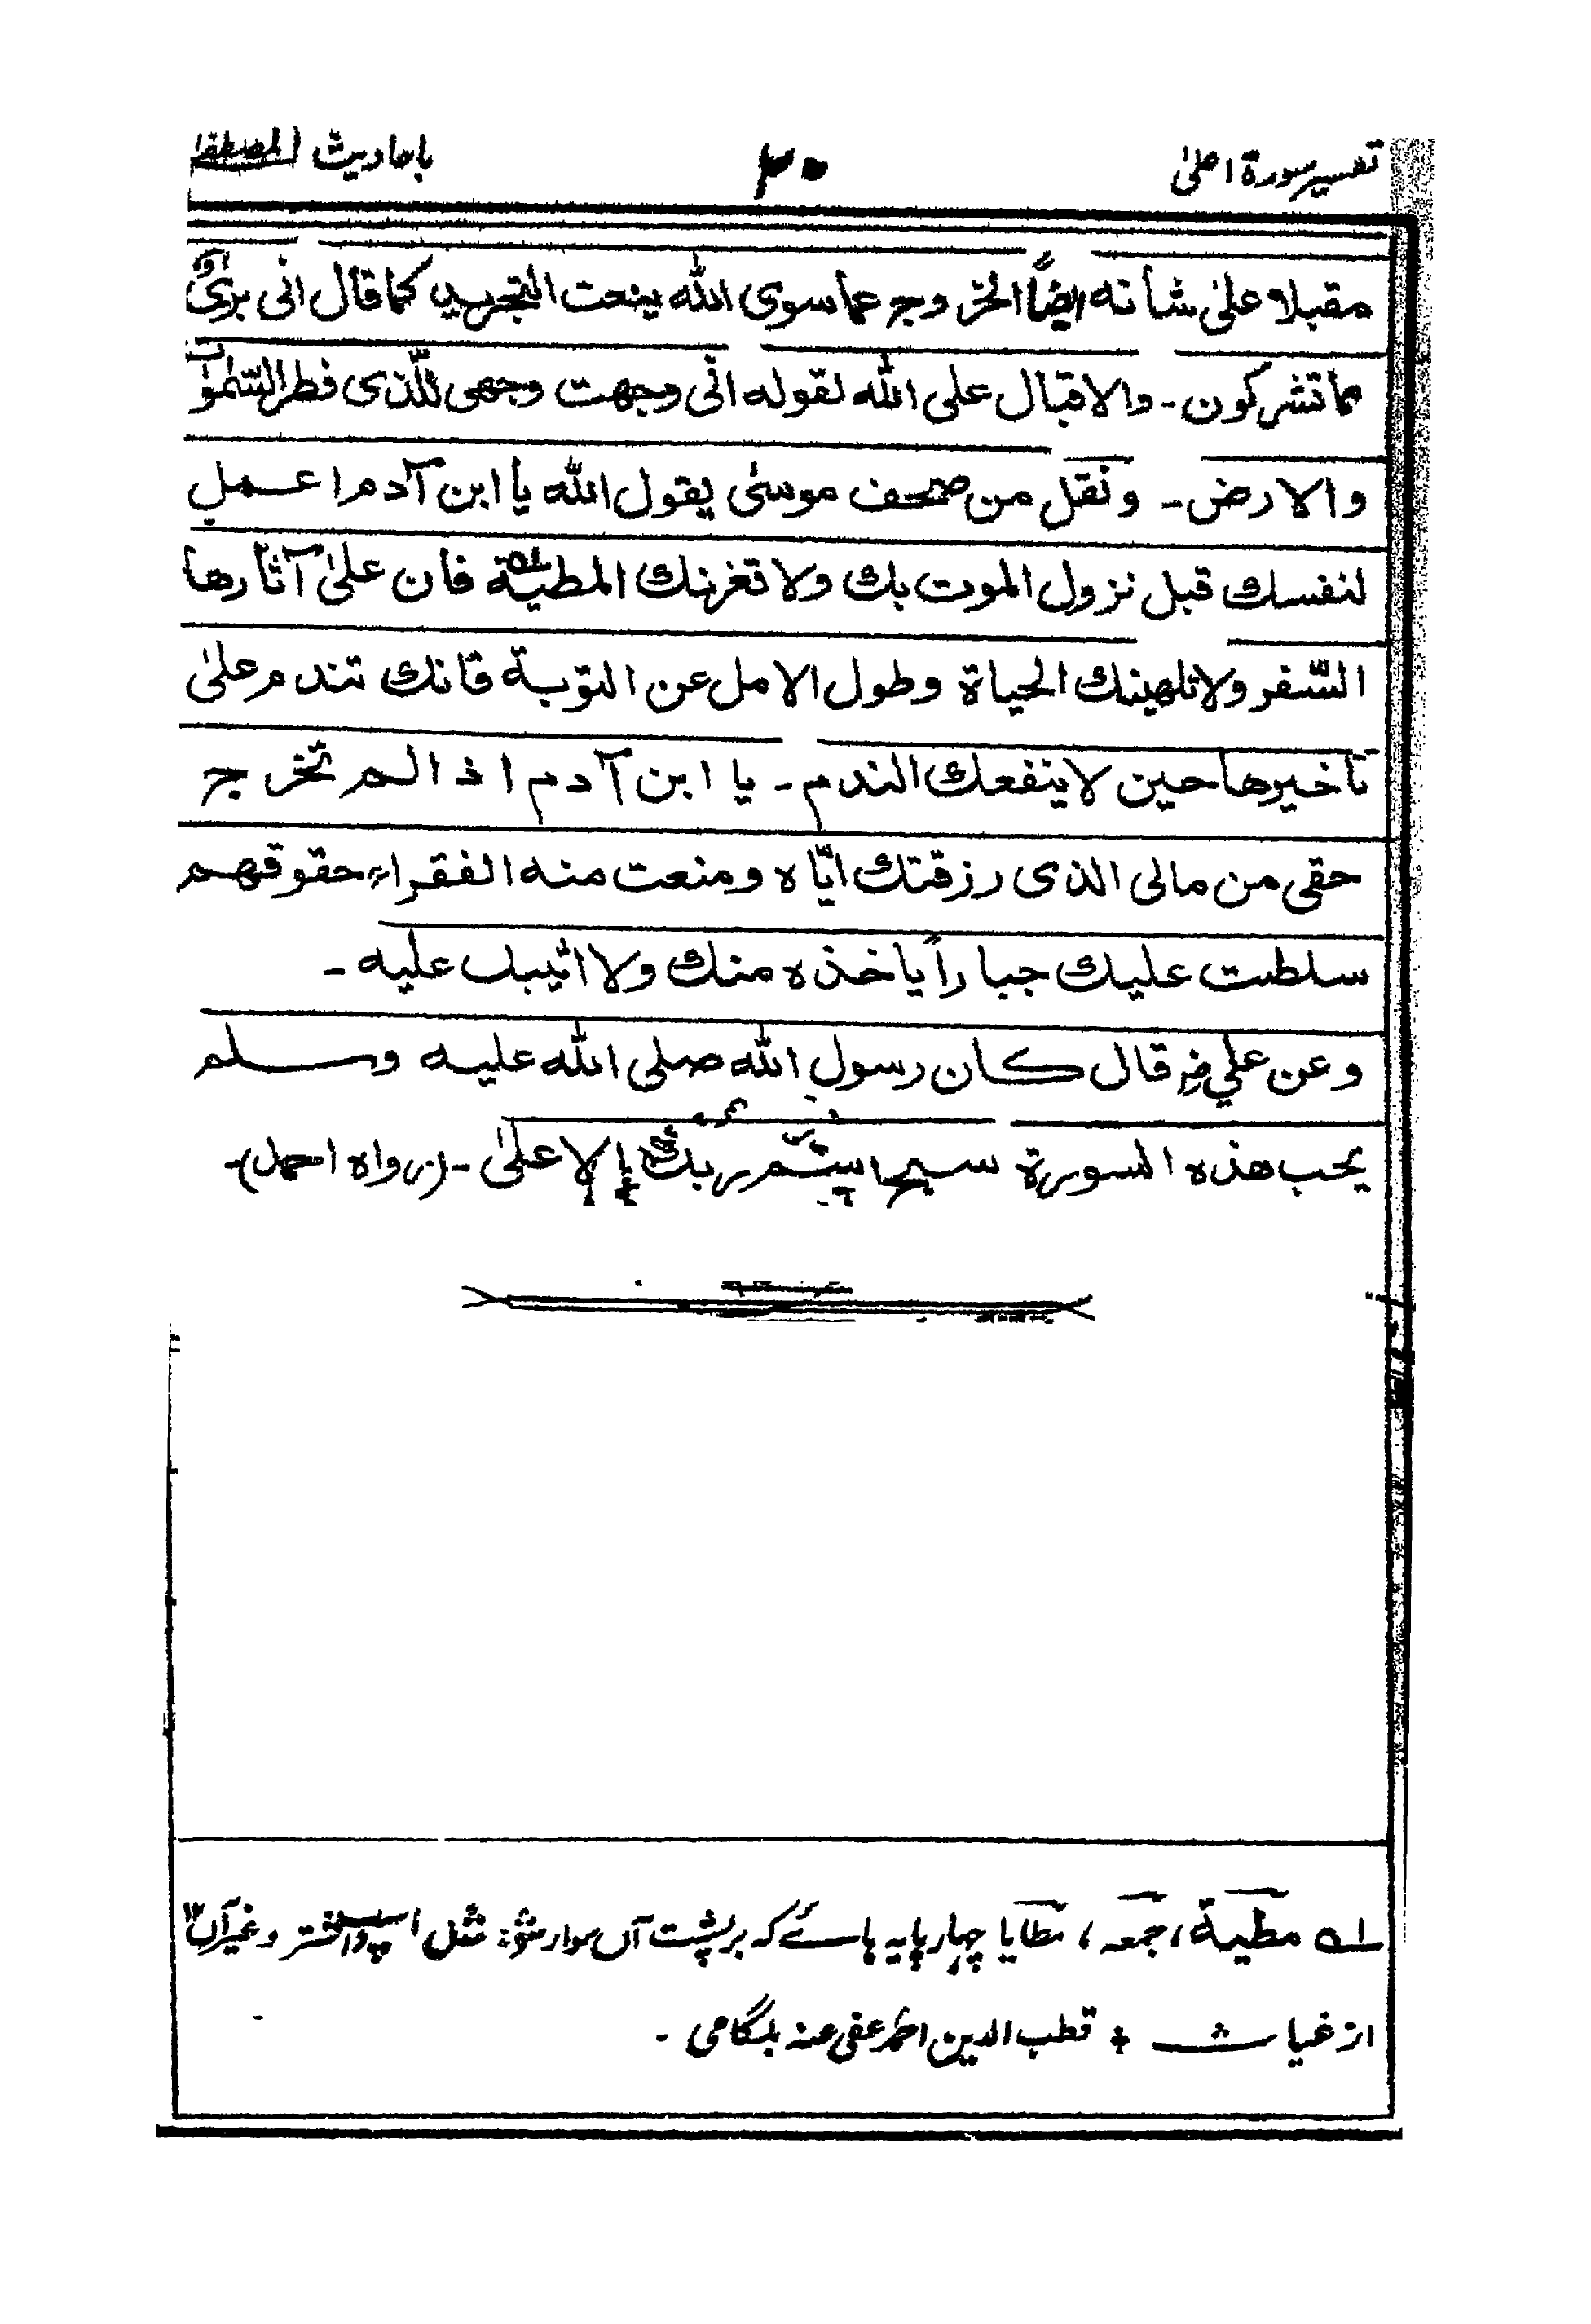 تفسیر سورة اعلیٰ ۴۰ باحادیث المصطفےٰ
مقبلا علیٰ شأنه ایضاً الخروج عما سوی الله ینعت التجرید کما قال انی بریٔ
مما تشرکون۔ والاقبال علی الله لقوله انّی وجهت وجهی للّذی فطر السّمٰوٰت
والارض۔ ونقل من صحف موسیٰ یقول الله یا ابن آدم اعمل
لنفسك قبل نزول الموت بك ولا تغرنك المطیة فان علیٰ آثارها
السّفر ولا تلهینك الحیاة وطول الامل عن التوبة فانك تندم علیٰ
تاخیرها حین لا ینفعك الندم۔ یا ابن آدم اذا لم تخرج
حقی من مالی الذی رزقتك ایّاه ومنعت منه الفقراء حقوقهم
سلطت علیك جباراً یاخذه منك ولا اثیبك علیه۔
وعن علیؓ قال کان رسول الله صلی الله علیه وسلم
یحب هذه السورة سبح اسم ربك الاعلیٰ۔ (رواه احمد)۔
۱ه مطیة، جمعه، مطایا چہار پایہ ہائے کہ بر پشت آں سوار شوند مثل اسپ و اشتر وغیر آں ۱۲
از غیاث + قطب الدین احمد عفی عنہ بلگامی ۔